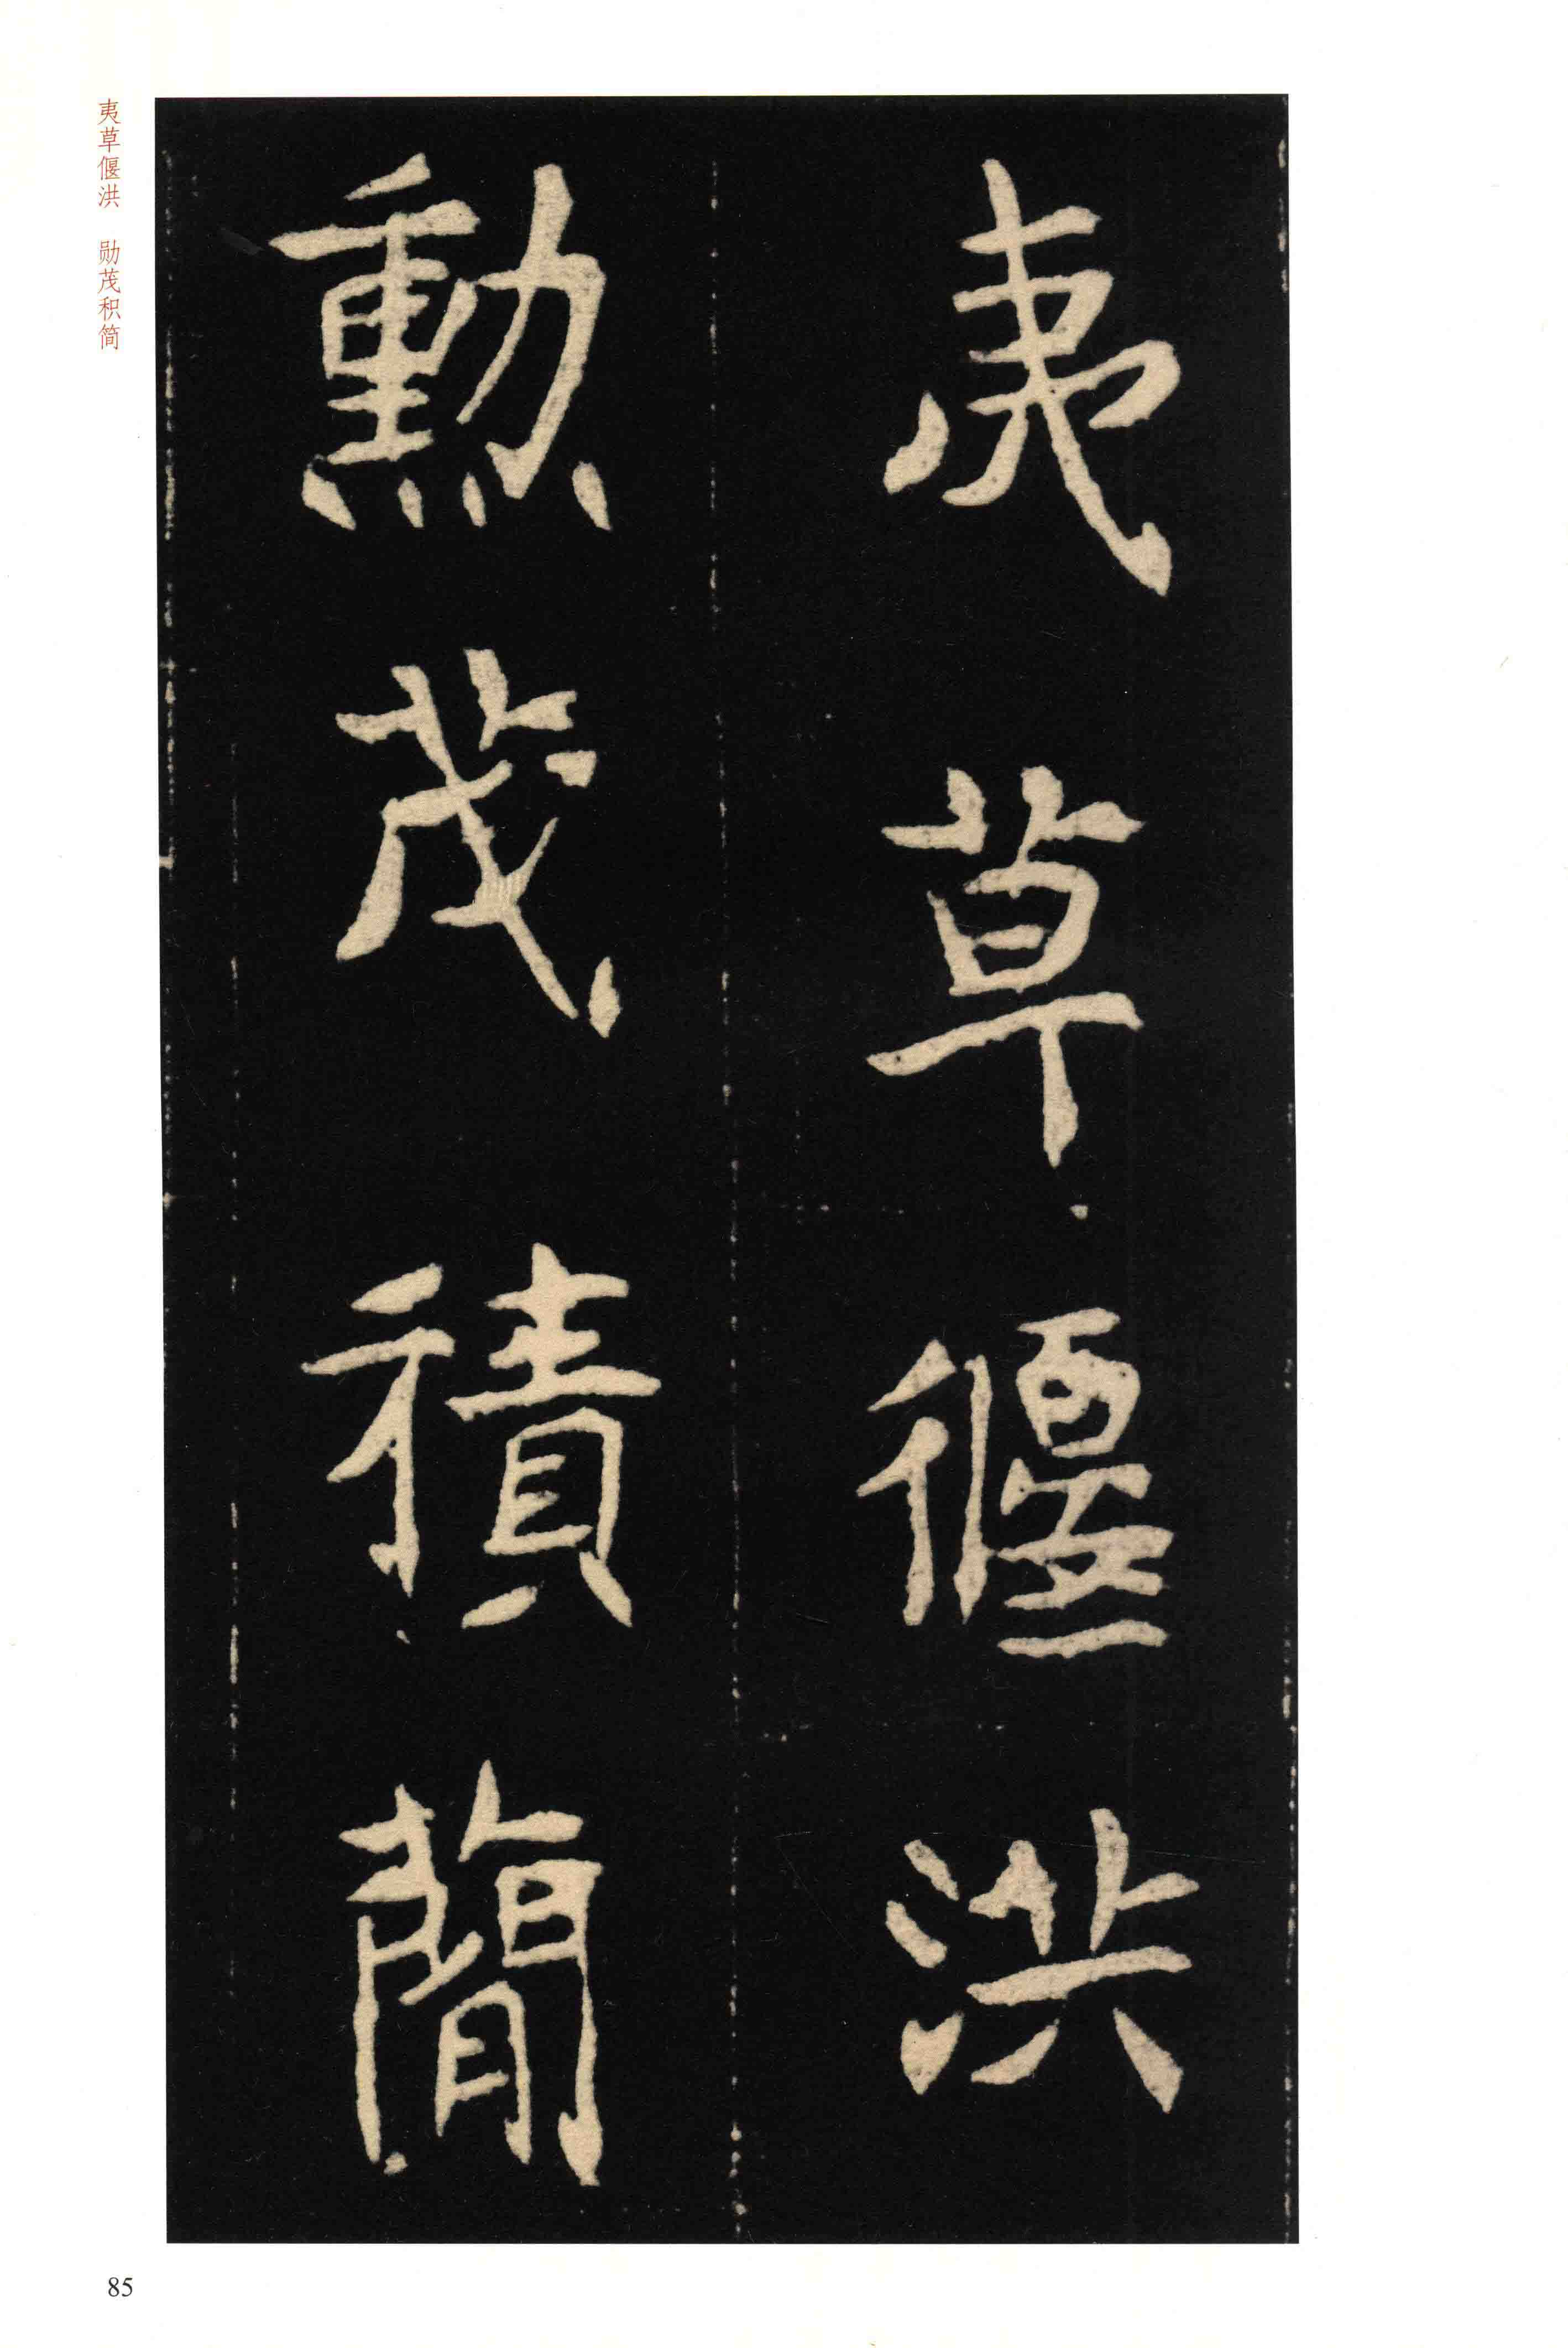 夷草偃洪
勳茂積簡
夷草偃洪 勋茂积简
85